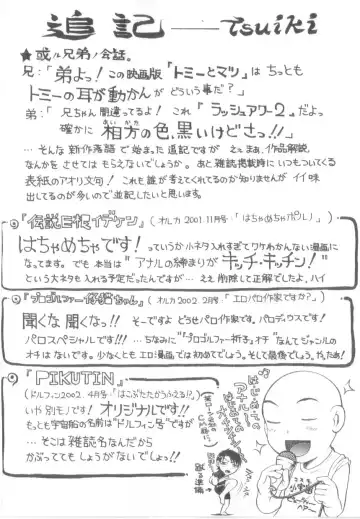 追記 ── tsuiki
★或ル兄弟ノ会話。
兄：「弟よっ！この映画版『トミーとマツ』はちっとも
トミーの耳が動かんがどういう事だ？」
弟：「兄ちゃん間違ってるよ！これ『ラッシュアワー2』だよっ
確かに相方の色、黒いけどさっ!!」
…そんな新作落語で始まった追記ですがええまぁ、作品解説
なんかをさせてはもらえないでしょうか。あと雑誌掲載時にいつもついてくる
表紙のアオリ文句！これも誰が考えてくれてるのか知りませんがイイ味
出してるのが多いので並記したいと思います。
(オルカ2001.11月号:「はちゃめちゃバブル」)
はちゃめちゃです！っていうか小ネタ入れすぎてワケわかんない漫画に
なってます。でも本当は"アナルの締まりがキッチ・キッチン！"
という大ネタも入れる予定だったんですが…ええ削除して正解でしたよ、ハイ
(オルカ2002 2月号:「エロパロ作家ですか？」)
聞くな聞くなっ!!そーですよどうせパロ作家です。パロディウスです！
パロスペシャルです!!!…ちなみに"『プロゴルファー祈子』オチ"なんてジャンルの
オチはないです。少なくともエロ漫画では初めてでしょう。そして最後でしょう。やったぁ！
◎『PIKUTIN』
(ドルフィン2002.4月号:「はこぶたたかうふえる!?」)
いや別モノです！オリジナルです!!
もっとも宇宙船の名前は"ドルフィン号"ですが
…そこは雑誌名なんだから
かぶってもしょうがないでしょっ!!
はじめての
アナルー